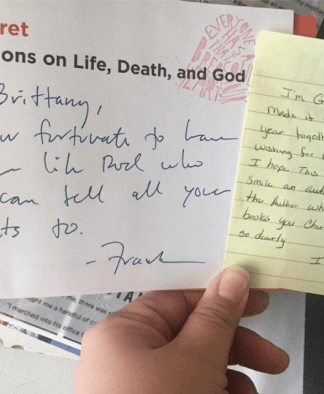 ret
ons on Life, Death, and God
EVERYONE
HAS A
BROKEN
HEART
Brittany,
fortunate to have
like Rod who
can tell all your
ts to.
- Frank
I'm G
made it
year togeth
wishing for
I hope This
Smile an aut
the Author wh
books you Cher
so dearly
I
ght me a handful of
"I marched into his office